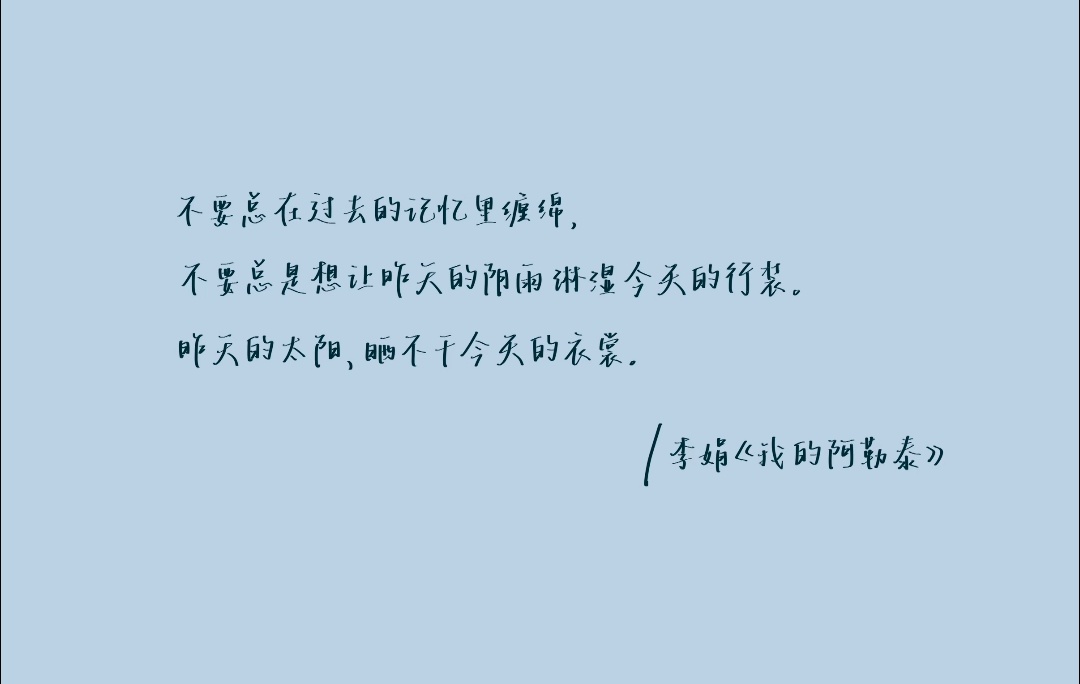 不要总在过去的记忆里缠绵，
不要总是想让昨天的阴雨淋湿今天的行装。
昨天的太阳、晒不干今天的衣裳.
/李娟《我的阿勒泰》